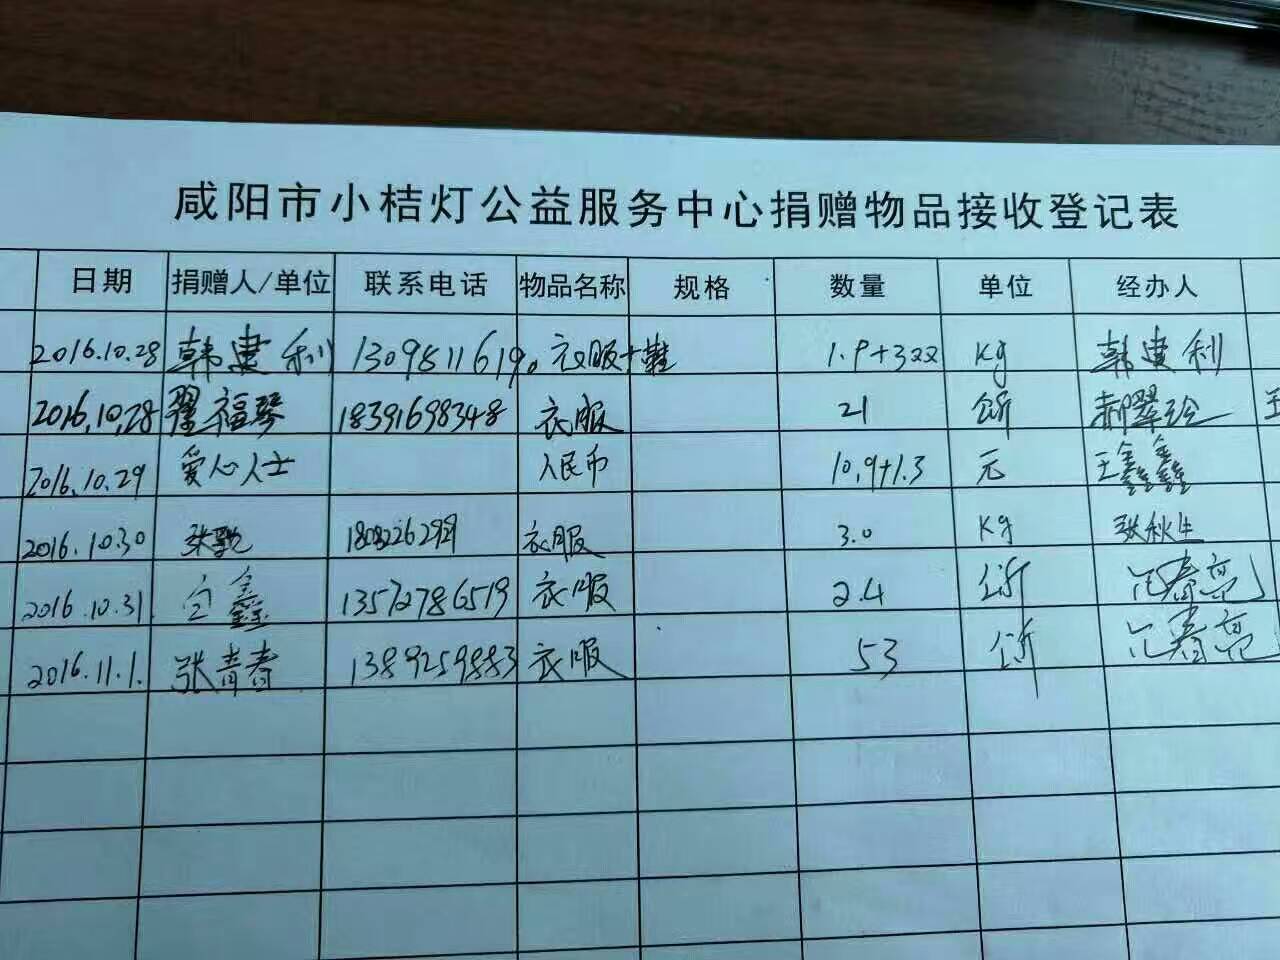 咸阳市小桔灯公益服务中心捐赠物品接收登记表
日期 捐赠人/单位 联系电话 物品名称 规格 数量 单位 经办人
2016.10.28 韩建利 13098116190 衣服+鞋 1.9+3双 kg 韩建利
2016.10.28 翟福琴 18391698348 衣服 21 公斤 郝翠玲
2016.10.29 爱心人士 人民币 10.9+1.3 元 王鑫鑫
2016.10.30 衣服 3.0 kg 张秋生
2016.10.31 鑫 13572786519 衣服 2.4 公斤
2016.11.1. 张青春 1389259883 衣服 53 公斤